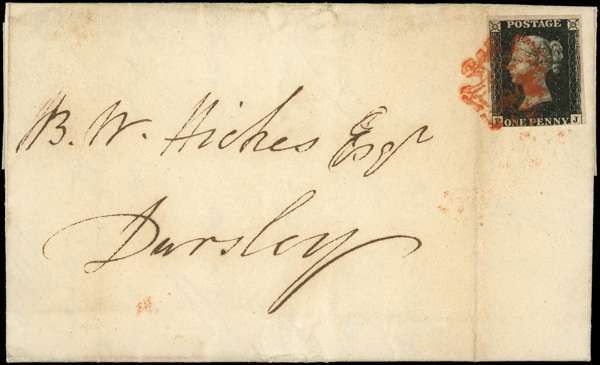 POSTAGE
ONE PENNY
J
B. W. Hickes Esqr
Dursley